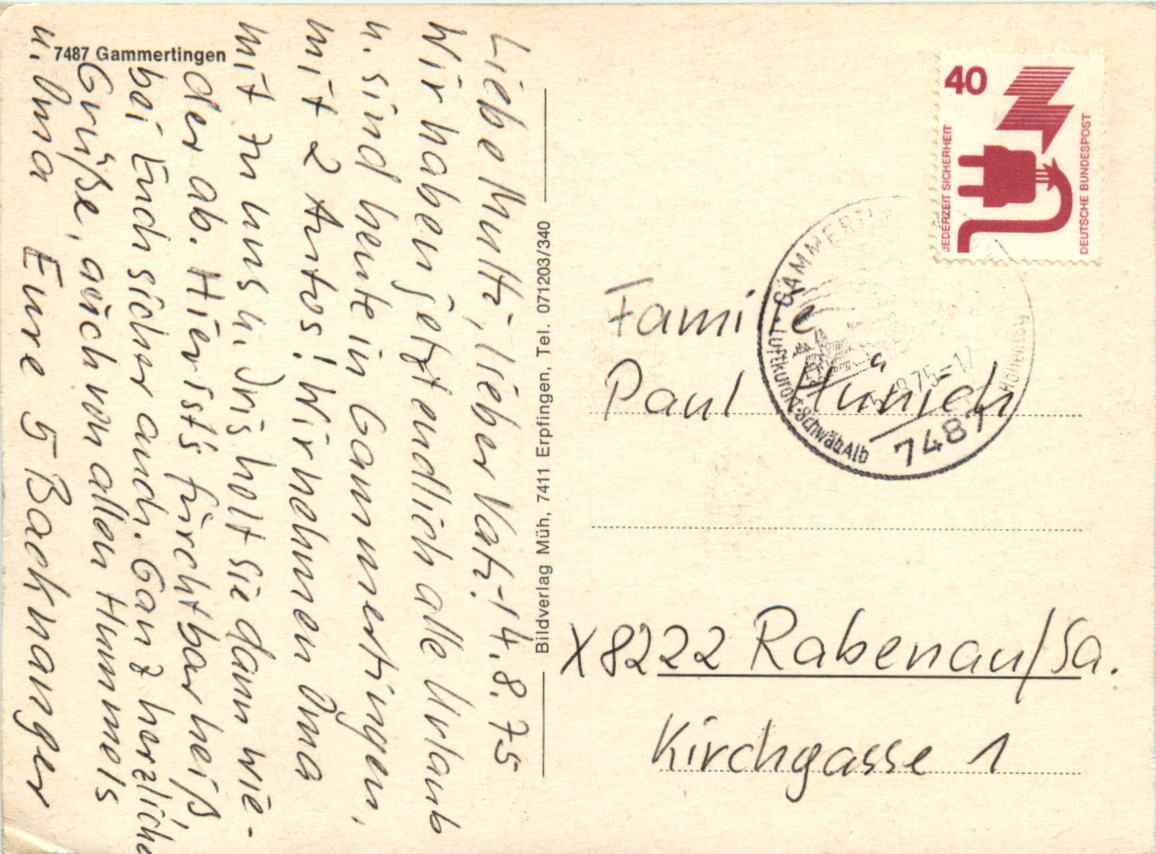 7487 Gammertingen
Liebe Mutti, lieber Vati! 14.8.75
Wir haben jetzt endlich alle Urlaub
u. sind heute in Gammertingen,
mit 2 Autos! Wir nehmen Oma
mit zu uns u. Iris holt sie dann wie-
der ab. Hier ist's furchtbar heiß
bei Euch sicher auch. Ganz herzliche
Grüße, auch von allen Hummels
u. Oma Eure 5 Backnanger
Bildverlag Müh, 7411 Erpfingen, Tel. 071203/340
40
JEDERZEIT SICHERHEIT
DEUTSCHE BUNDESPOST
Luftkurort · Schwäb Alb
7487
Familie
Paul Hünich
X8222 Rabenau/Sa.
Kirchgasse 1